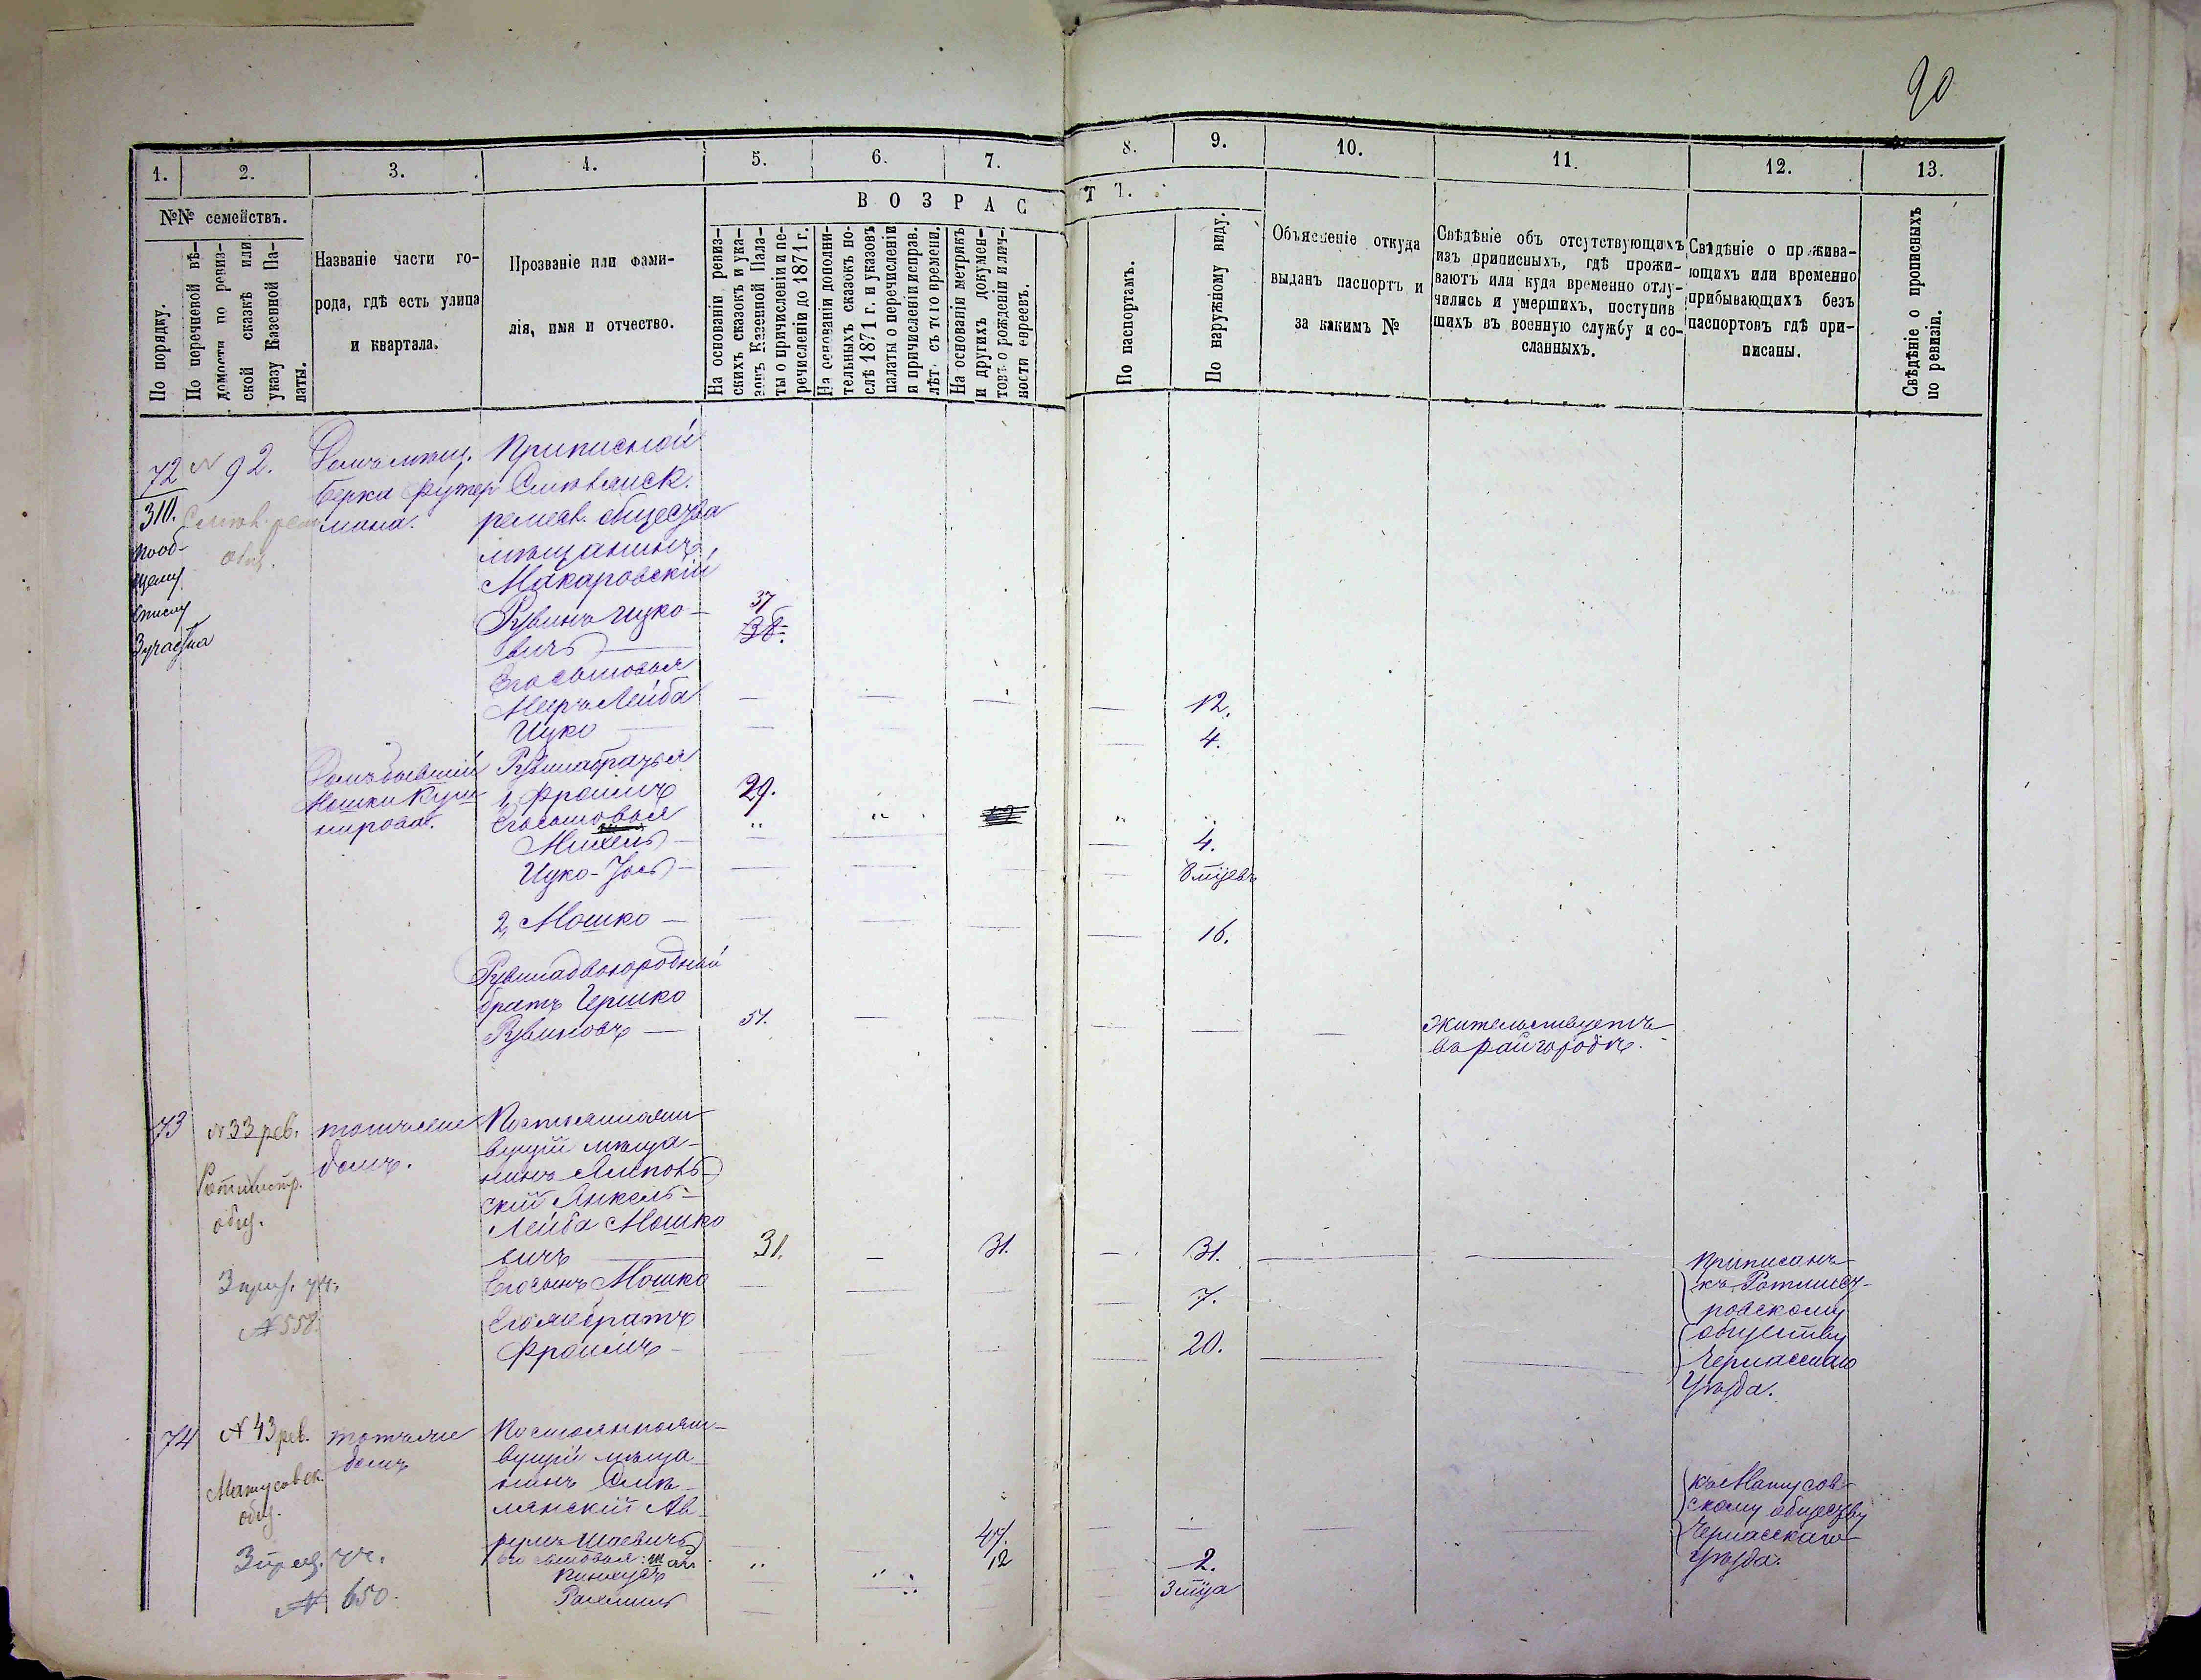 90
1.
2.
3.
4.
5.
6.
7.
8.
9.
10.
11.
12.
13.
№№ семействъ.
В О З Р А С
Т Ъ.
По порядку.
По перечневой вѣ-
домости по ревиз-
ской сказкѣ или
указу Казенной Па-
латы.
Названіе части го-
рода, гдѣ есть улица
и квартала.
Прозваніе или фами-
лія, имя и отчество.
На основаніи ревиз-
скихъ сказокъ и ука-
зовъ Казенной Пала-
ты о причисленіи и пе-
речисленіи до 1871 г.
На основаніи дополни-
тельныхъ сказокъ по-
слѣ 1871 г. и указовъ
палаты о перечисленіи
и причисленіи исправ.
лѣт. съ того времени.
На основаніи метрикъ
и другихъ докумен-
товъ о рожденіи и лич-
ности евреевъ.
По паспортамъ.
По наружному виду.
Объясненіе откуда
выданъ паспортъ и
за какимъ №
Свѣдѣніе объ отсутствующихъ
изъ приписныхъ, гдѣ прожи-
ваютъ или куда временно отлу-
чились и умершихъ, поступив
шихъ въ военную службу и со-
сланныхъ.
Свѣдѣніе о прожива-
ющихъ или временно
прибывающихъ безъ
паспортовъ гдѣ при-
писаны.
Свѣдѣніе о прописныхъ
по ревизіи.
72
310.
пооб-
щему
списку
3 участка
N 92.
Смѣл. рем
общ.
Домъ мѣщ.
Берка Футер
мана.
Приписной
Смѣлянск.
ремесл. общества
мѣщанинъ
Макаровскій
Рувинъ Ицко-
вичъ
37
36.
Его сыновья
Меиръ Лейба
12.
Ицко
4.
Домъ бывшій
Мошки Куш
нирова.
Рувина братья
1, Фроимъ
29.
Его сыновья
Михель
4.
Ицко-Іось
8 мцевъ
2, Мошко
16.
Рувина двоюродный
братъ Гершко
Рувиновъ
51.
Жительствуетъ
въ Райгородѣ.
73
N 33 рев.
Ротмистр.
общ.
3 приз. уч.
№ 558.
тотъ же
домъ.
Постоянножи
вущій мѣща-
нинъ Липов
скій Янкель-
Лейба Мошко
вичъ
31.
31.
31.
Его сынъ Мошко
7.
Его же братъ
Фроимъ
20.
Приписанъ
къ Ротмист-
ровскому
обществу
Черкасскаго
Уѣзда.
74
N 43 рев.
Матусовск.
общ.
3 приз. уч.
№ 650.
тотъ же
домъ
Постоянножи-
вущій мѣща-
нинъ Смѣ-
лянскій Ав-
румъ Шаевичъ
47.
Его сыновья: Шая
12
Пинхусъ
2.
Рахмиль
3 мца
къ Матусов-
скому обществу
Черкасскаго
Уѣзда.